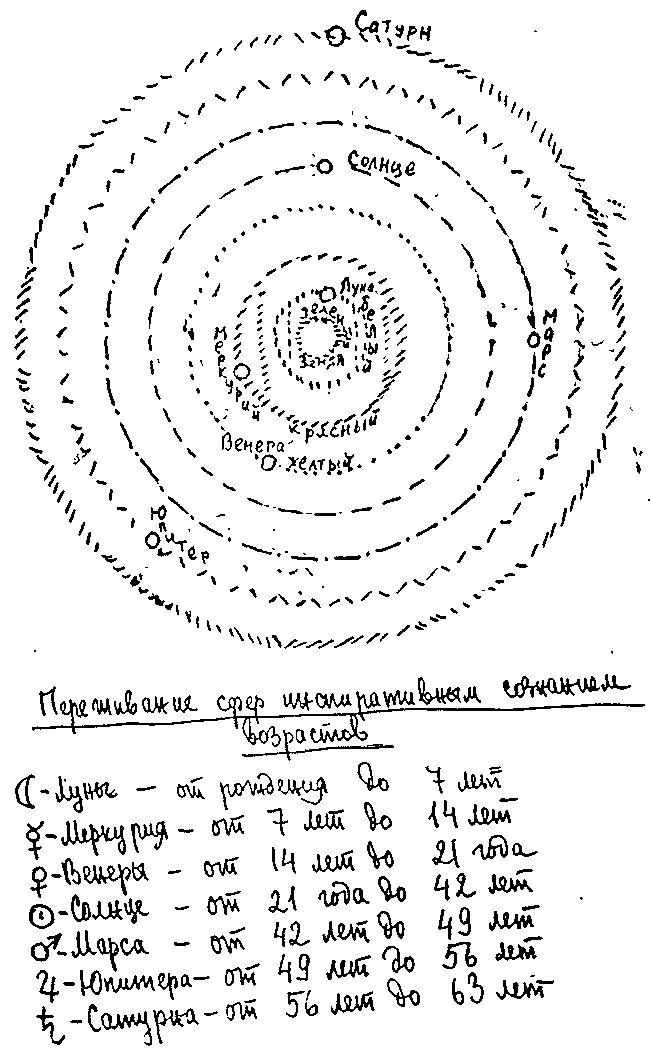 Сатурн
Солнце
Луна
зелен
белый
Земля
Марс
Меркурий
красный
Венера
желтый
Юпитер
Переживание сфер инспиративным сознанием
возрастов
☾-Луны — от рождения до 7 лет
☿-Меркурия — от 7 лет до 14 лет
♀-Венеры — от 14 лет до 21 года
☉-Солнце — от 21 года до 42 лет
♂-Марса — от 42 лет до 49 лет
♃-Юпитера — от 49 лет до 56 лет
♄-Сатурна — от 56 лет до 63 лет